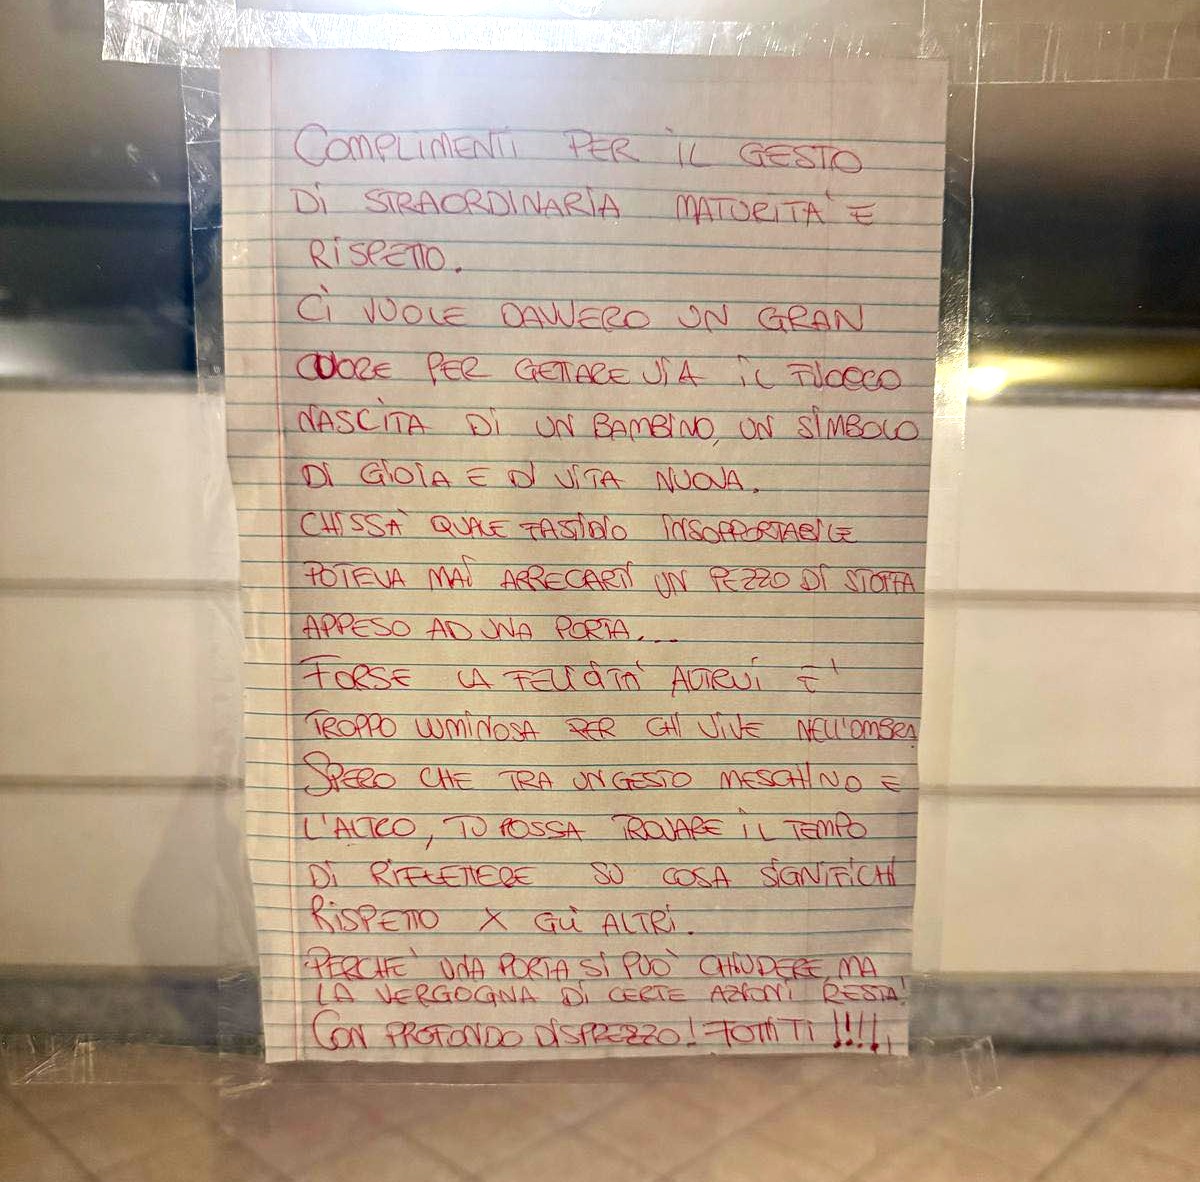 COMPLIMENTI PER IL GESTO
DI STRAORDINARIA MATURITA' E
RISPETTO.
CI VUOLE DAVVERO UN GRAN
CUORE PER GETTARE VIA IL FIOCCO
NASCITA DI UN BAMBINO, UN SIMBOLO
DI GIOIA E DI VITA NUOVA.
CHISSA' QUALE FASTIDIO INSOPPORTABILE
POTEVA MAI ARRECARTI UN PEZZO DI STOFFA
APPESO AD UNA PORTA...
FORSE LA FELICITA' ALTRUI E'
TROPPO LUMINOSA PER CHI VIVE NELL'OMBRA
SPERO CHE TRA UN GESTO MESCHINO E
L'ALTRO, TU POSSA TROVARE IL TEMPO
DI RIFLETTERE SU COSA SIGNIFICHI
RISPETTO X GLI ALTRI.
PERCHE' UNA PORTA SI PUO' CHIUDERE, MA
LA VERGOGNA DI CERTE AZIONI RESTA!
CON PROFONDO DISPREZZO! FOTTITI!!!!